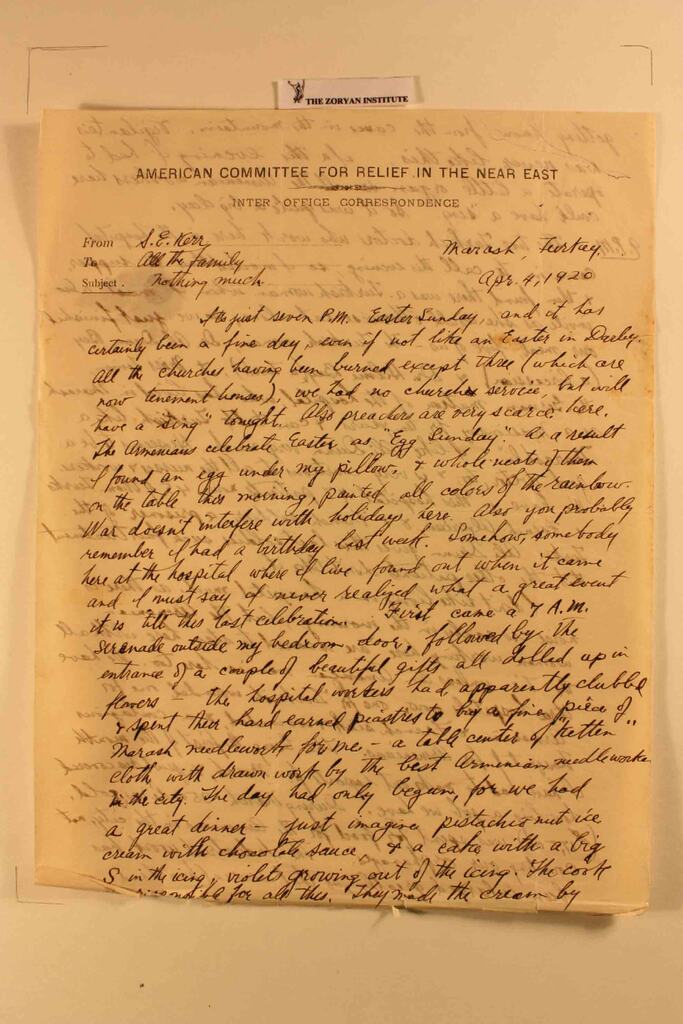 THE ZORYAN INSTITUTE
AMERICAN COMMITTEE FOR RELIEF IN THE NEAR EAST
INTER OFFICE CORRESPONDENCE
From S. E. Kerr Marash, Turkey,
To All the family Apr. 4, 1920
Subject. Nothing much
Its just seven P.M. Easter Sunday, and it has
certainly been a fine day, even if not like an Easter in Darby.
All the churches having been burned except three (which are
now tenement houses), we had no church service, but will
have a "sing" tonight. Also preachers are very scarce here.
The Armenians celebrate Easter as "Egg Sunday". As a result
I found an egg under my pillow, & whole nests of them
on the table this morning, painted all colors of the rainbow.
War doesn't interfere with holidays here. Also you probably
remember I had a birthday last week. Somehow, somebody
here at the hospital, where I live, found out when it came
and I must say I never realized what a great event
it is till this last celebration. First came a 7 A.M.
serenade outside my bedroom door, followed by the
entrance of a couple of beautiful gifts all dolled up in
flowers — The hospital workers had apparently clubbed
& spent their hard earned piastres to buy a fine piece of
Marash needlework for me — a table center of "ketten"
cloth with drawn work by the best Armenian needleworker
in the city. The day had only begun, for we had
a great dinner — just imagine pistachio nut ice
cream with chocolate sauce, & a cake with a big
S in the icing, violets growing out of the icing. The cook
responsible for all this. They made the cream by